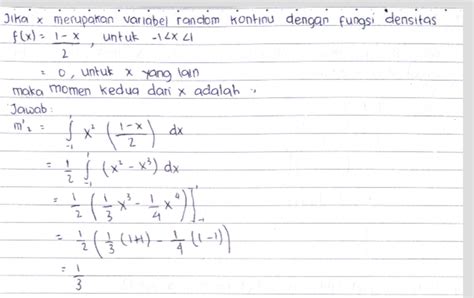 Jika x merupakan variabel random kontinu dengan fungsi densitas
f(x) = 1-x / 2 , untuk -1<x<1
= 0, untuk x yang lain
maka momen kedua dari x adalah :
Jawab :
m'₂ = ∫₋₁¹ x² (1-x / 2) dx
= 1/2 ∫₋₁¹ (x² - x³) dx
= 1/2 (1/3 x³ - 1/4 x⁴)]₋₁¹
= 1/2 (1/3 (1+1) - 1/4 (1-1))
= 1/3